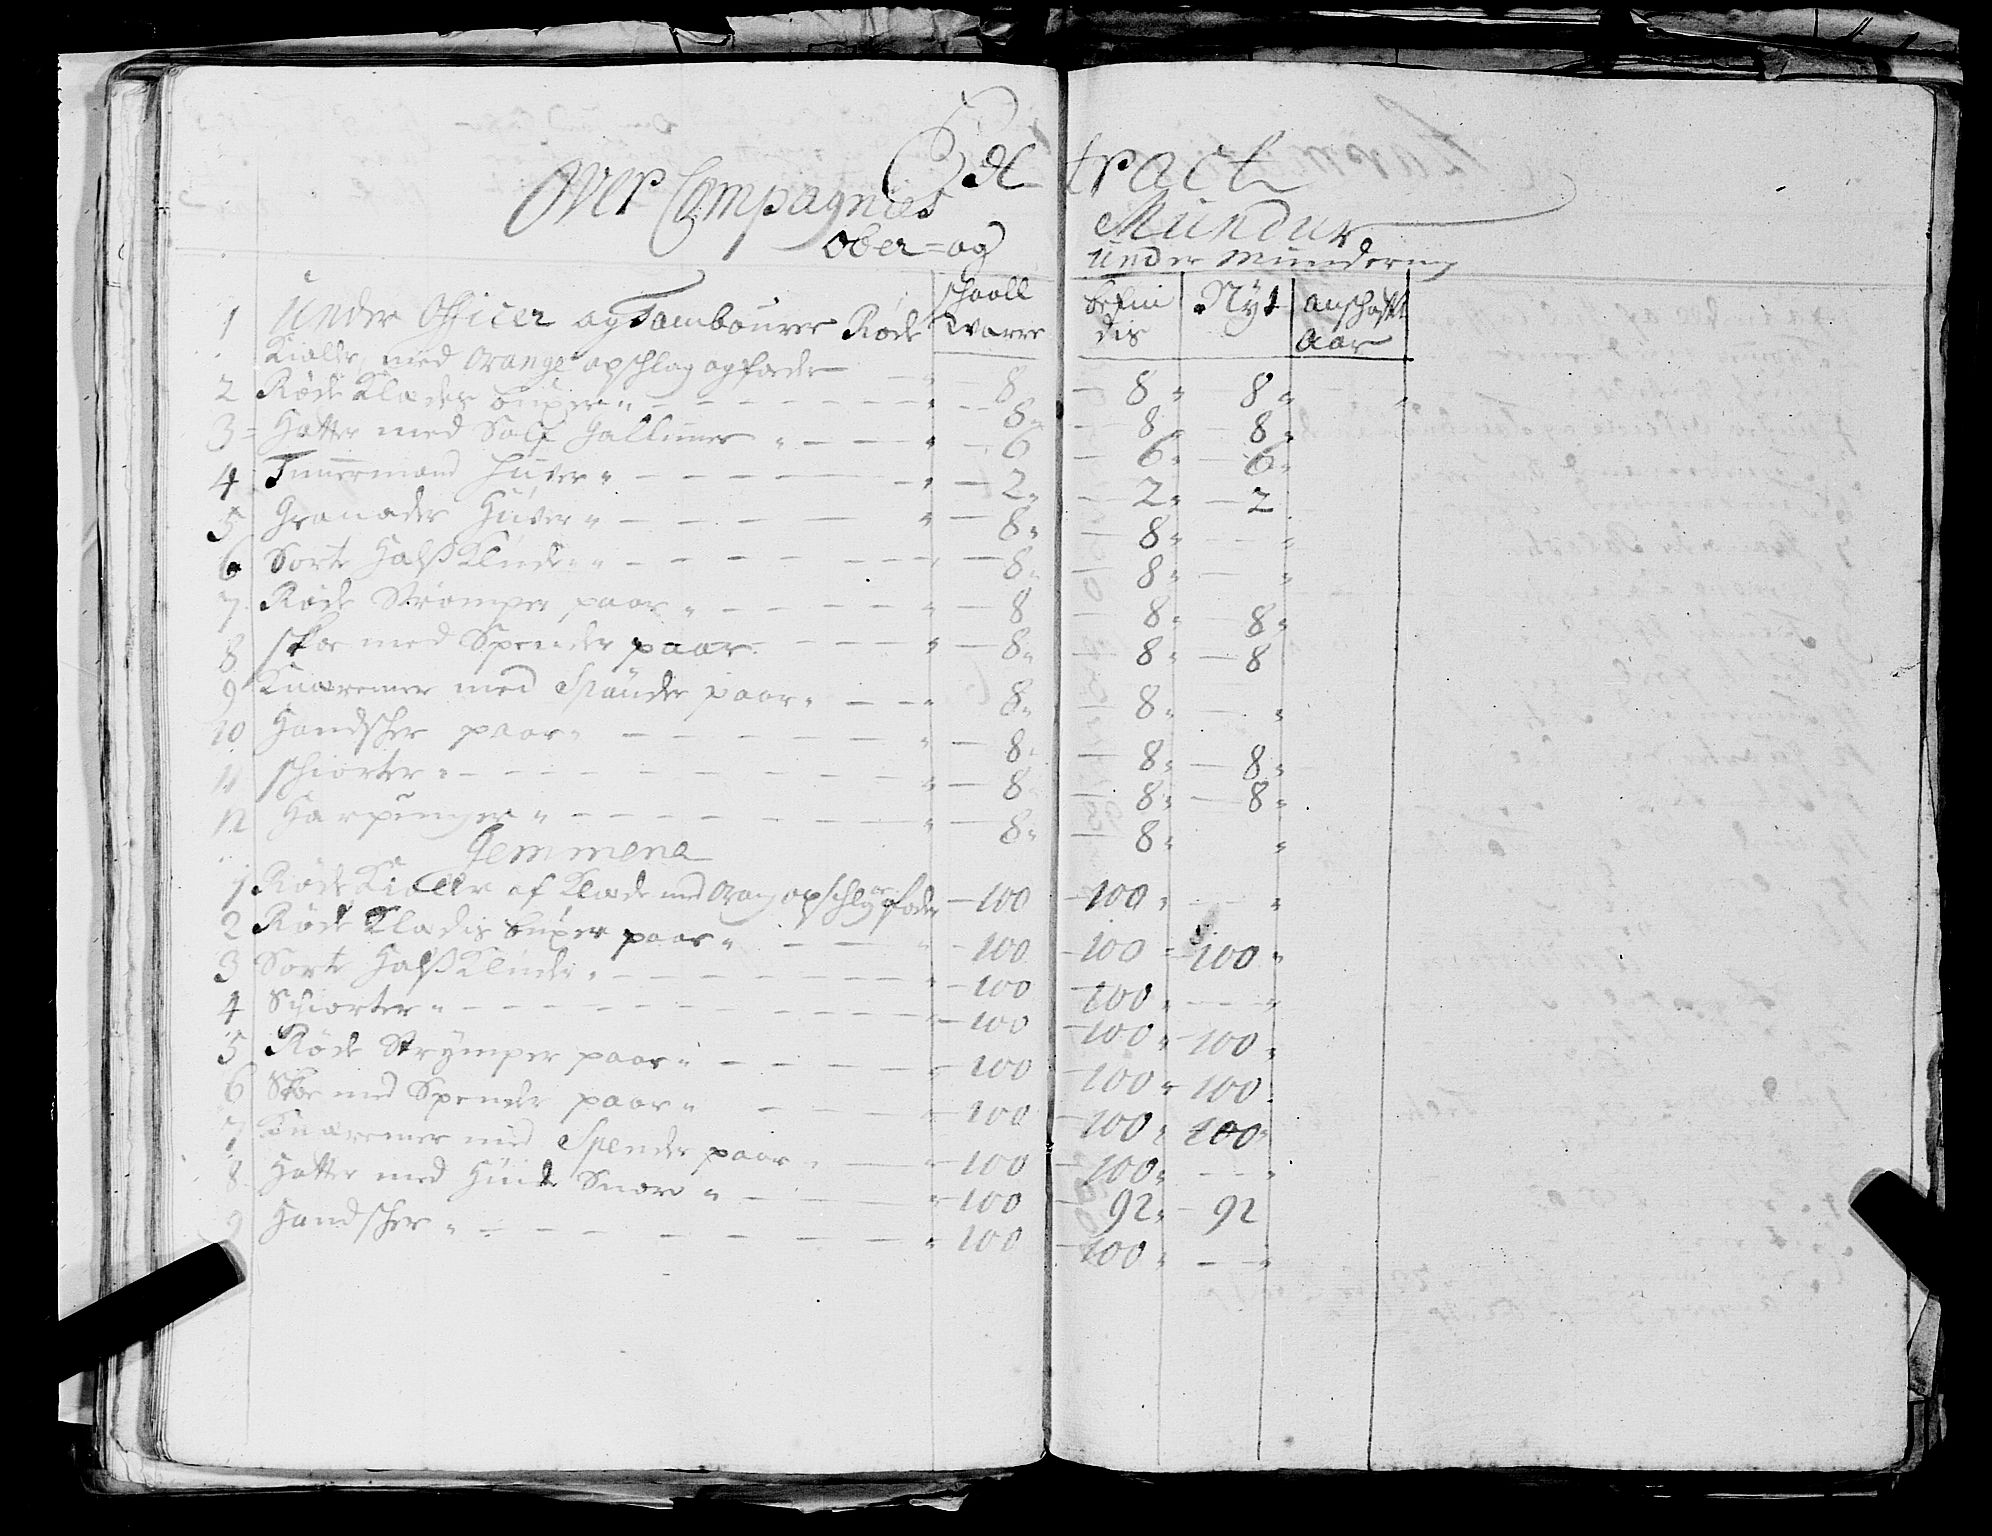 Extract
Over Compagniets Mundur
ober- og Under Mundering
schall Werre | Befindis | Nyt | anschaffet Aar
1 Under Officer og Tambourer Røde
Kioller, med Orange opschlag og foeder " 8 — 8 " 8 "
2 Røde Klædes buxer " — 8 " — 8 " — 8 "
3 Hatter med Sølf Galluner " — 6 — 6 " — 6 "
4 Timermand Huver " — 2 " — 2 " — 2
5 Granader Huver " — 8 " — 8 " — "
6 Sorte Halsklude " — 8 " — 8 " — "
7 Røde Strømper, paar " — 8 — 8 " — 8 "
8 skoe med Spender paar — 8 " — 8 " — 8
9 Knæremer med Spænder paar " — 8 " — 8 " — "
10 Handscher paar " — 8 " — 8 " — 8 "
11 schiorter " — 8 " — 8 " — 8 "
12 Harpunger " — 8 " — 8 " "
Gemmene
1 Røde Kioller af Klæde med Orang opschlag og foder — 100 — 100 " — "
2 Røde Klædis buxer paar " — 100 — 100 — 100 "
3 Sorte Halsklude " — 100 — 100 " — "
4 Schiorter " — 100 — 100 " — 100 "
5 Røde Strymper paar " — 100 — 100 " — 100
6 Skoe med Spender paar " — 100 — 100 " — 100 "
7 Knæremer med Spender paar " — 100 — 100 " — "
8 Hatte med Snore " — 100 — 92 " — 92
9 Handscher " — 100 — 100 " — "